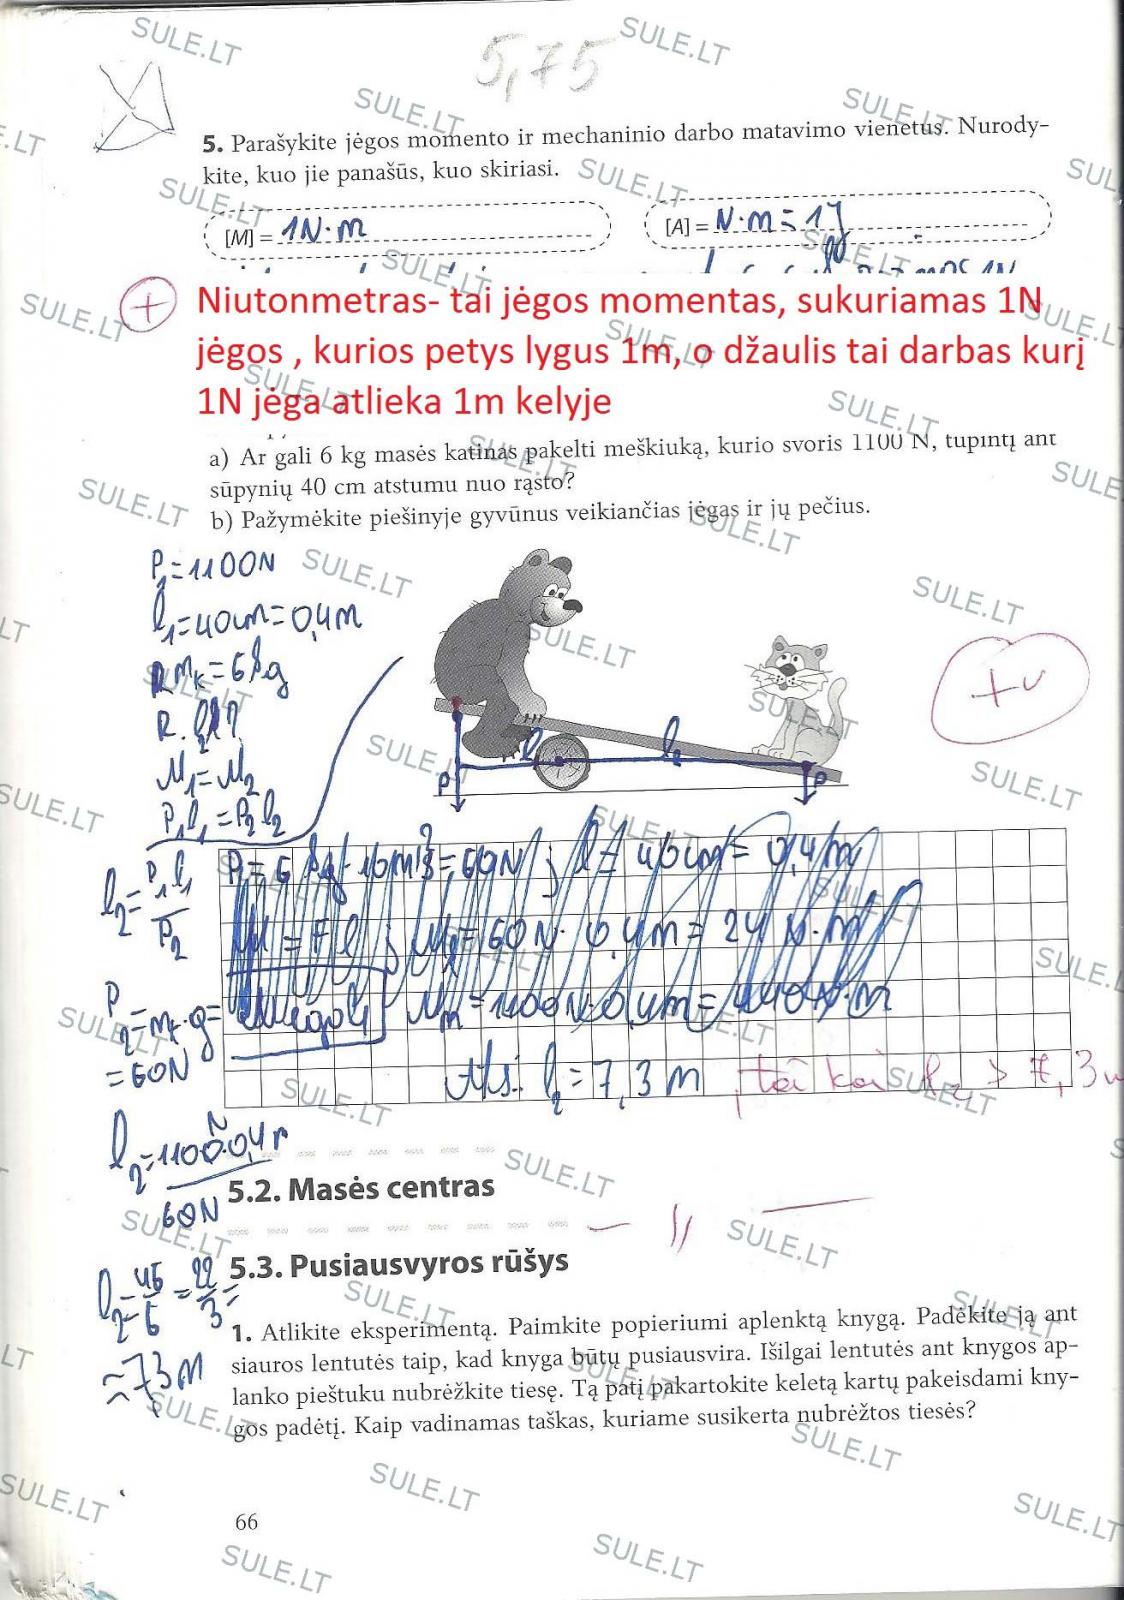 5,75
5. Parašykite jėgos momento ir mechaninio darbo matavimo vienetus. Nurody-
kite, kuo jie panašūs, kuo skiriasi.
[M] = 1N·m
[A] = N·m = 1J
+
Niutonmetras- tai jėgos momentas, sukuriamas 1N
jėgos , kurios petys lygus 1m, o džaulis tai darbas kurį
1N jėga atlieka 1m kelyje
a) Ar gali 6 kg masės katinas pakelti meškiuką, kurio svoris 1100 N, tupintį ant
sūpynių 40 cm atstumu nuo rąsto?
b) Pažymėkite piešinyje gyvūnus veikiančias jėgas ir jų pečius.
P₁=1100N
l₁=40cm=0,4m
mₖ=6kg
R. l₂?
M₁=M₂
P₁l₁=P₂l₂
l l₂
P P
+
l₂= P₁l₁
P₂
P₁= 6 kg·10m/s²=60N ; l= 40cm= 0,4m
M = F l ; M = 60N· 0,4m= 24 N·m
M = 1100N·0,4m= 440 N·m
P₂=mₖ·g=
=60N
Ats.: l₂=7,3m , tai kai l₂ > 7,3m
l₂= 1100N·0,4m
60N
5.2. Masės centras
5.3. Pusiausvyros rūšys
l₂= 45
6
= 22
3 =
≈7,3m
1. Atlikite eksperimentą. Paimkite popieriumi aplenktą knygą. Padėkite ją ant
siauros lentutės taip, kad knyga būtų pusiausvira. Išilgai lentutės ant knygos ap-
lanko pieštuku nubrėžkite tiesę. Tą patį pakartokite keletą kartų pakeisdami kny-
gos padėtį. Kaip vadinamas taškas, kuriame susikerta nubrėžtos tiesės?
66
SULE.LT